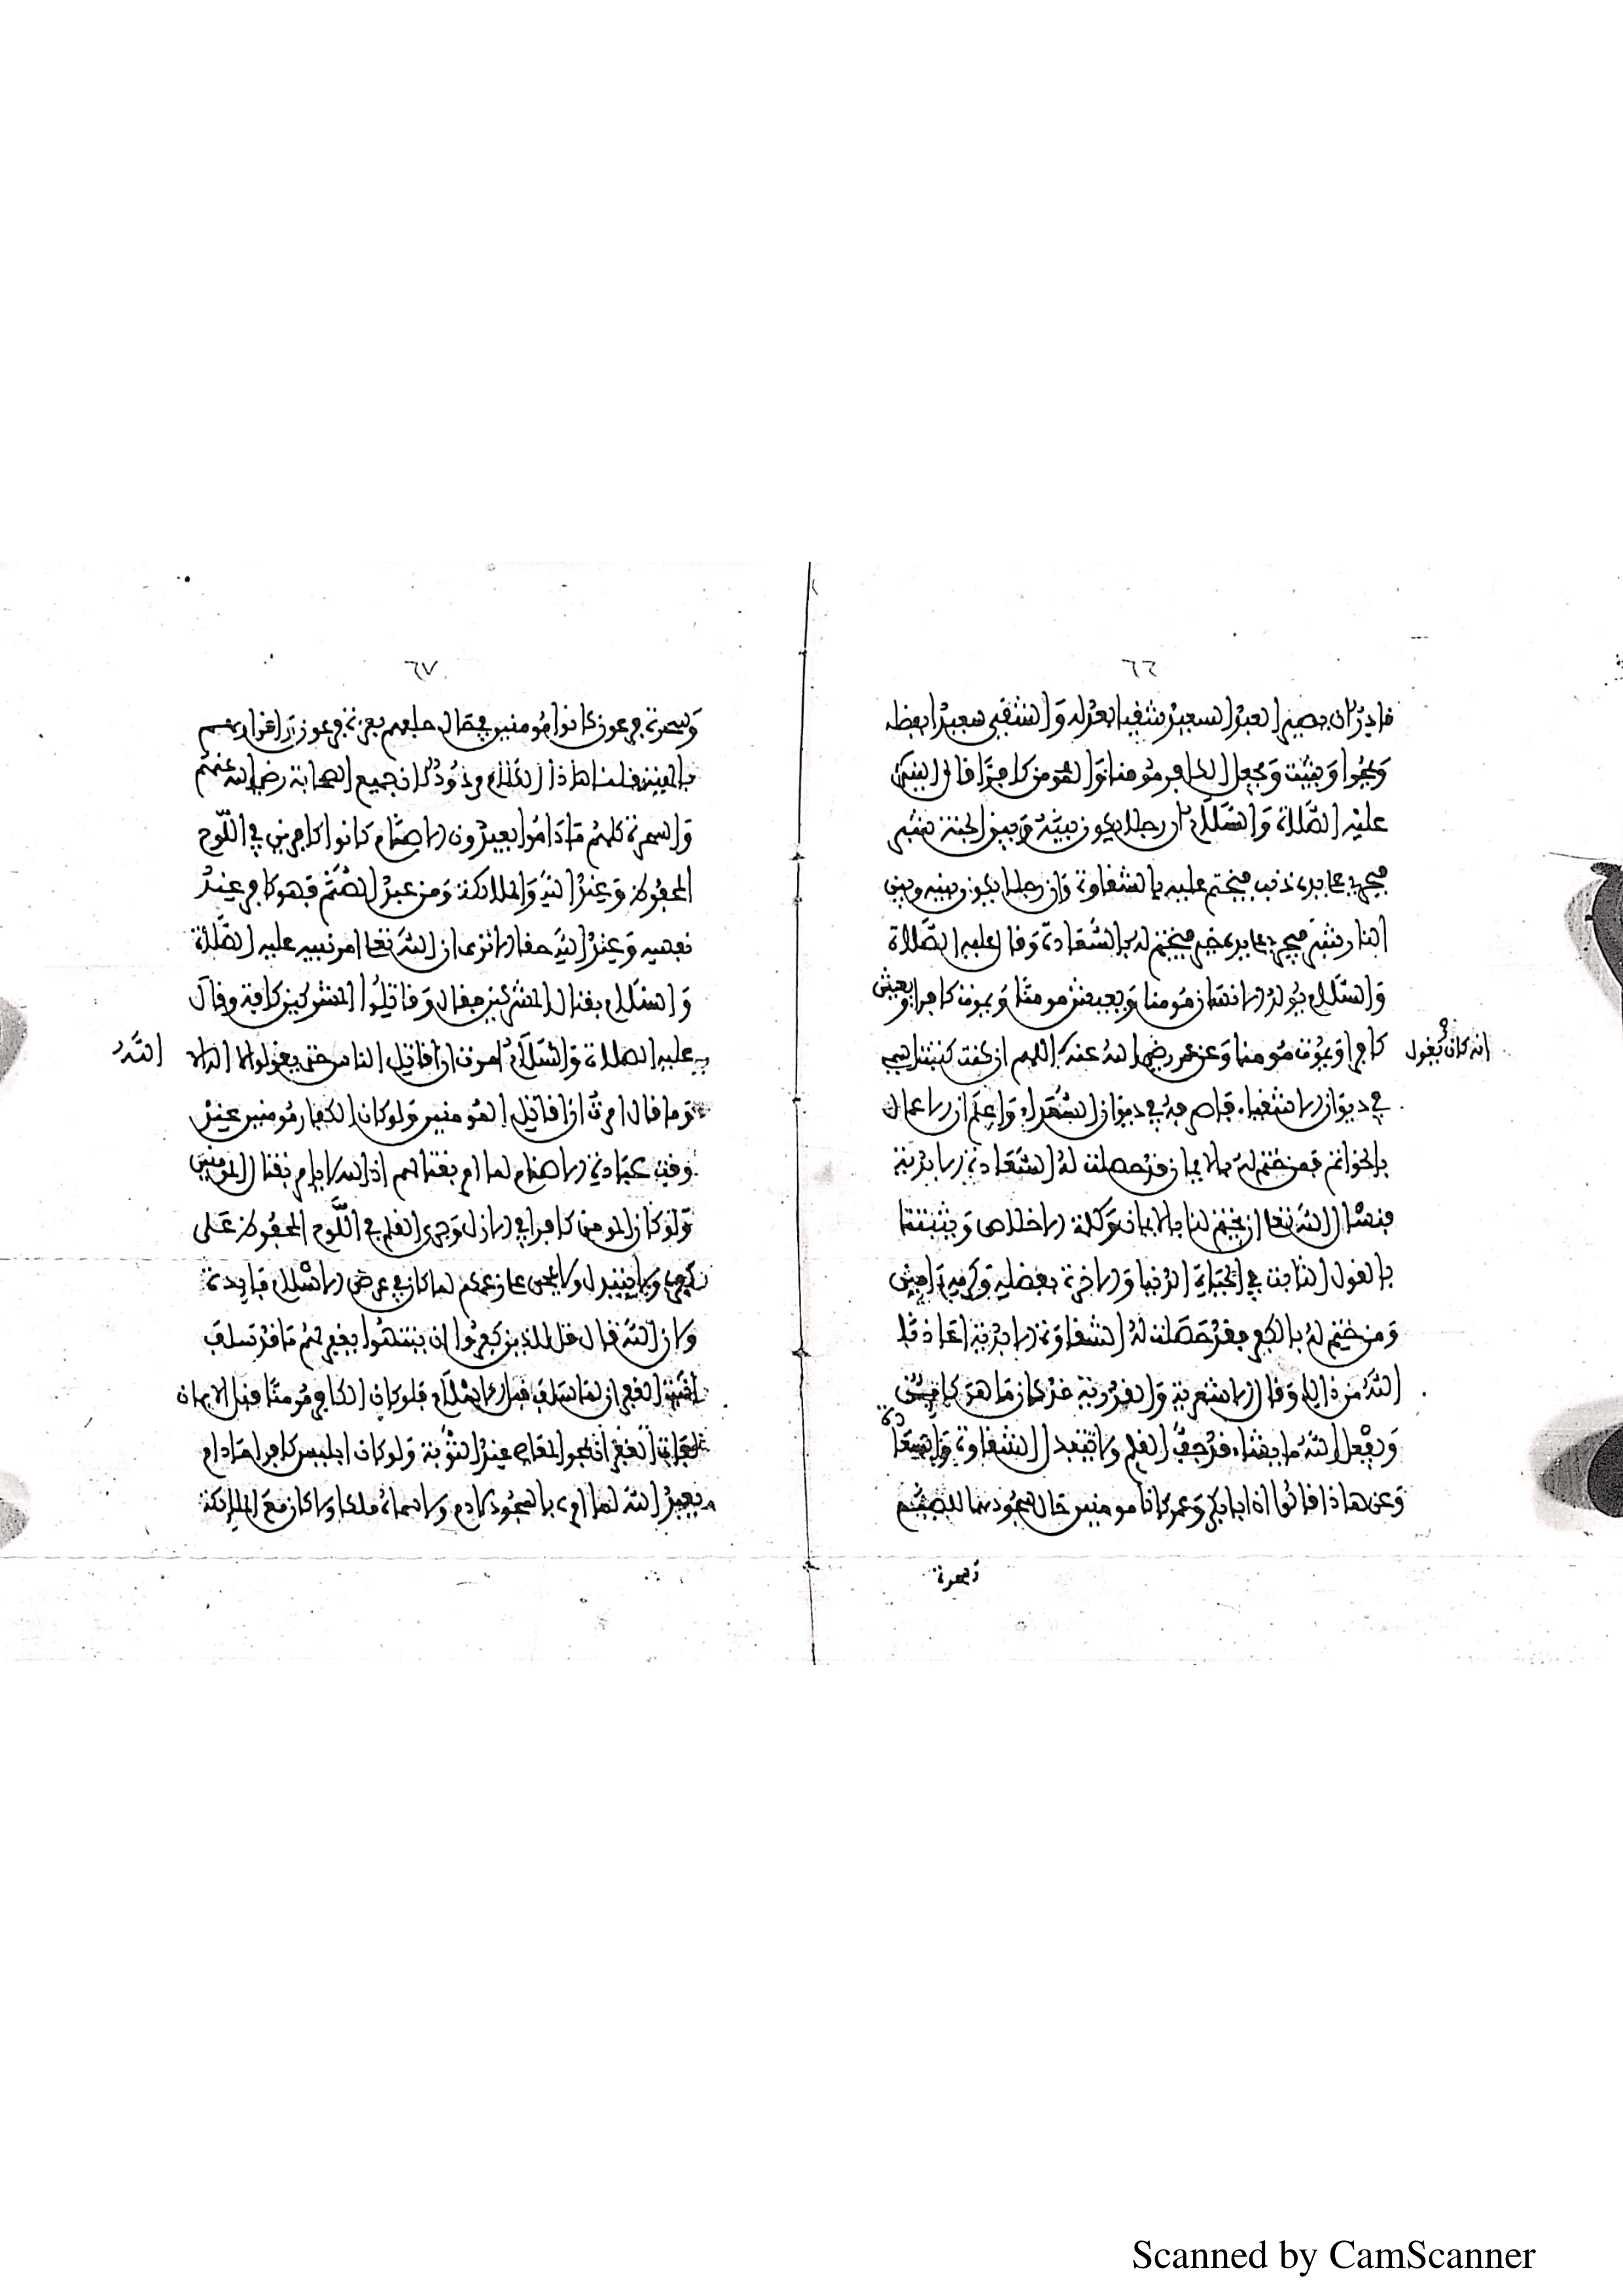 ٦٦
قادر ان يصير العبد السعيد شقيا بعدله والشقي سعيدا بفضله
ويمحوا ويثبت ويجعل الكافر مومنا والمومن كافرا قال النبي
عليه الصلاة والسلام ان رجلا يكون بينه وبين الجنة شبر
فيجري على يديه ذنب فيختم عليه بالشقاوة وان رجلا يكون بينه وبين
النار شبر فيجري على يديه خير فيختم له بالسعادة وقال عليه الصلاة
والسلام يولد الانسان مومنا ويعيش مومنا ويموت كافرا ويعيش
كافرا ويموت مومنا وعن عمر رضي الله عنه اللهم ان كنت كتبت اسمي
انه كان يقول
في ديوان الاشقياء في ديوان السعداء واعلم ان الاعمال
بالخواتم فمن ختم له بالايمان فقد حصلت له السعادة الابدية
فنسال الله تعالى ان يختم لنا بالايمان وكلمة الاخلاص ويثبتنا
بالقول الثابت في الحياة الدنيا والاخرة بفضله وكرمه امين
ومن ختم له بالكفر فقد حصلت له الشقاوة الابدية اعاذنا
الله من ذالك وقال الاشعرية والقدرية
ويفعل الله ما يشاء قد جف القلم ولا تتبدل الشقاوة والسعادة
وعن هاذا قالوا ان ابا بكر وعمر كانا مومنين حال سجودهما للصنم
وسحرة
٦٧
وسحرة فرعون كانوا مومنين في حال حلفهم بعزة فرعون
قلنا هاذا الكلام مردود لان جميع الصحابة رضي الله عنهم
والسحرة كلهم ما داموا يعبدون الاصنام كانوا كافرين في اللوح
المحفوظ وعند الله والملائكة ومن عبد الصنم فهو كافر عند
نفسه وعند الله حقا الا ترى ان الله تعالى امر نبيه عليه الصلاة
والسلام بقتال المشركين فقال وقاتلوا المشركين كافة وقال
عليه الصلاة والسلام امرت ان اقاتل الناس حتى يقولوا لا اله الا الله
وما قال امرت ان اقاتل المومنين ولو كان الكفار مومنين عند
وقت عبادة الاصنام لما امر بقتالهم اذ الله لا يامر بقتال المومنين
ولو كان المومن كافرا في الازل وجرى القلم في اللوح المحفوظ على
ولا يتبدل ولا يمحى على زعمكم لما كان في عرض الاسلام فايدة
ولان الله قال قل للذين كفروا ان ينتهوا يغفر لهم ما قد سلف
الغفران لما سلف قبل الاسلام فلو كان الكافر مومنا قبل الايمان
عند التوبة ولو كان ابليس كافرا ما دام
يعبد الله لما امره بالسجود لادم ولا سماه ملكا ولا كان مع الملائكة
Scanned by CamScanner